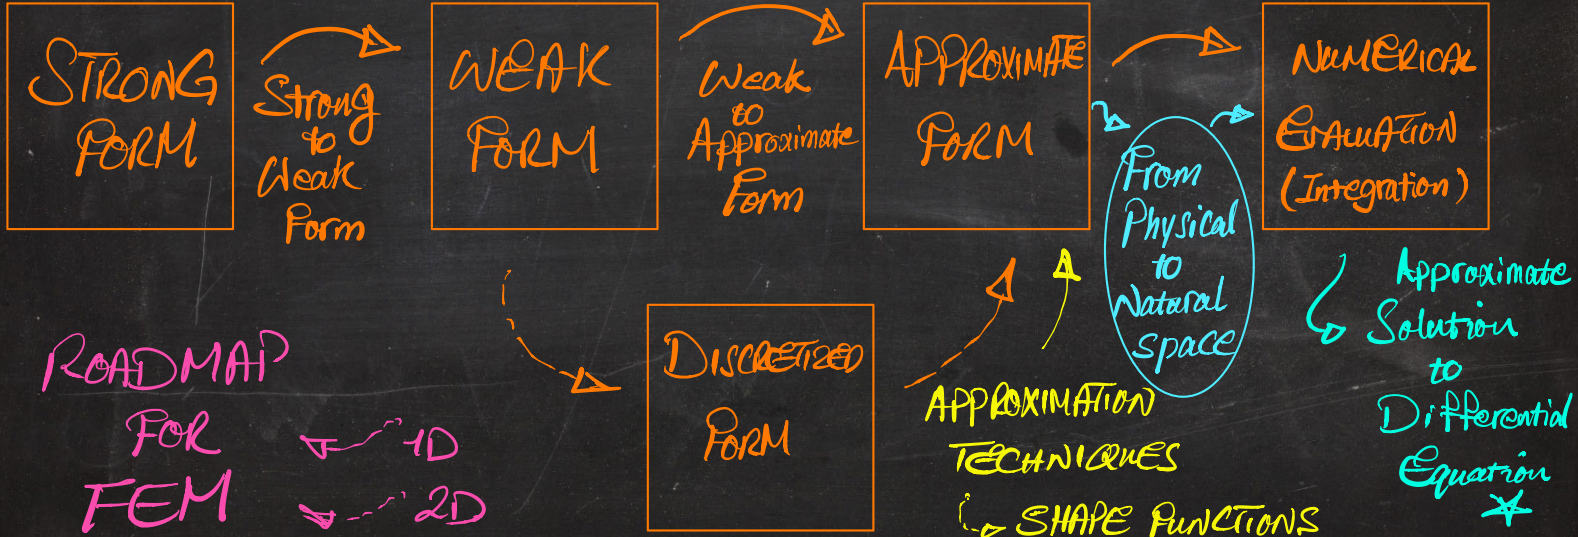 STRONG
FORM
Strong
to
Weak
Form
WEAK
FORM
Weak
to
Approximate
Form
APPROXIMATE
FORM
From
Physical
to
Natural
space
NUMERICAL
EVALUATION
(Integration)
DISCRETIZED
FORM
APPROXIMATION
TECHNIQUES
SHAPE FUNCTIONS
Approximate
Solution
to
Differential
Equation
ROADMAP
FOR
FEM
1D
2D